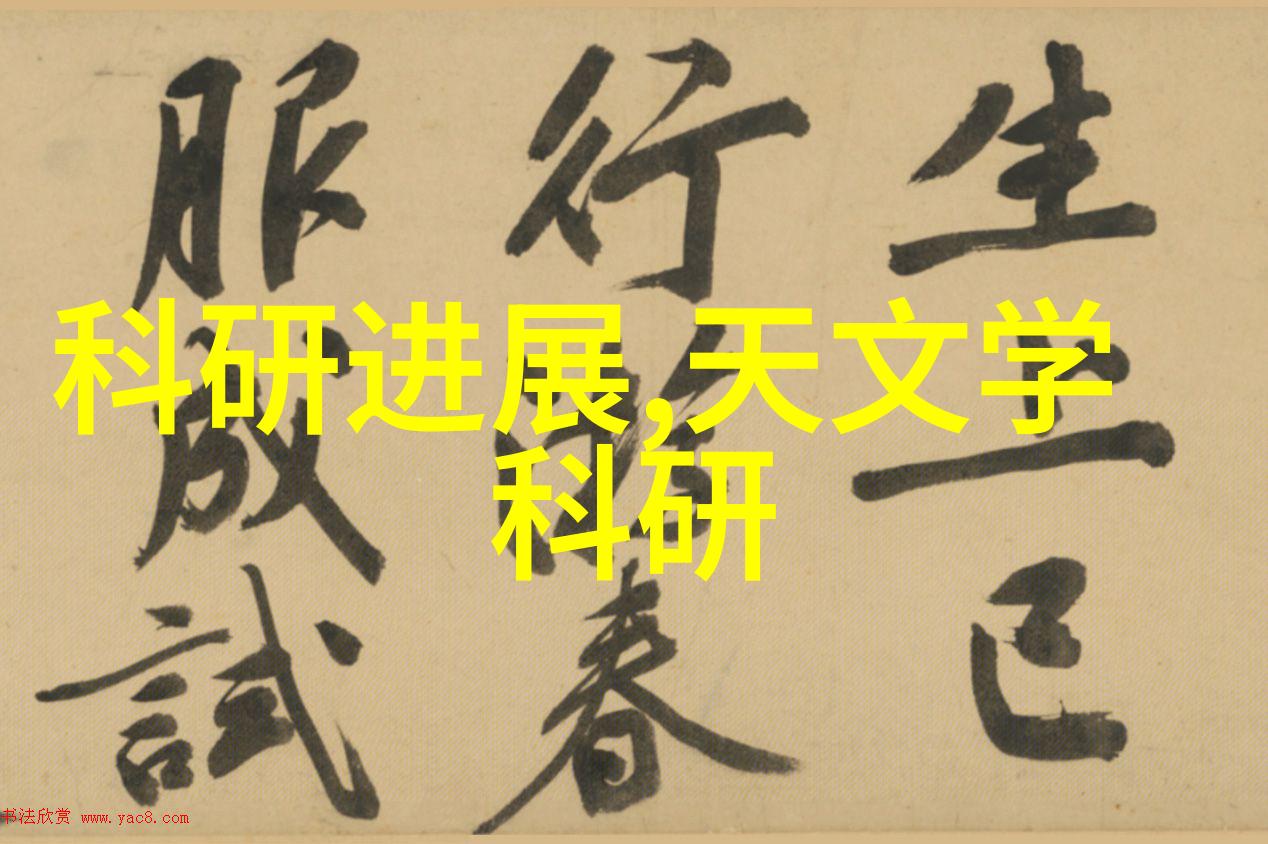 科研进展,天文学
科研
生上巳
行春
服成試
书法欣赏 www.yac8.com